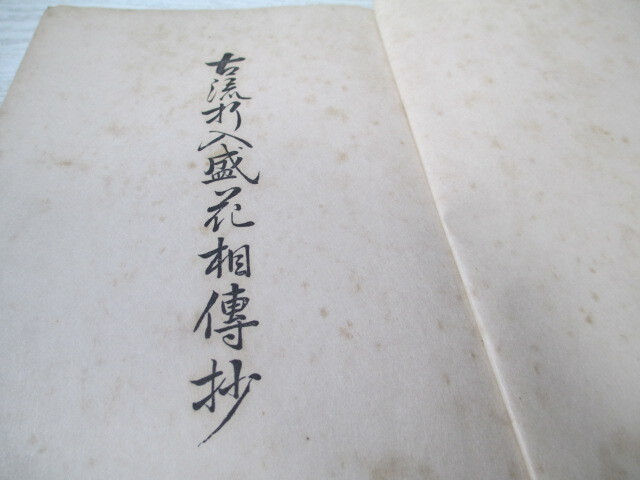 古流投入盛花相傳抄